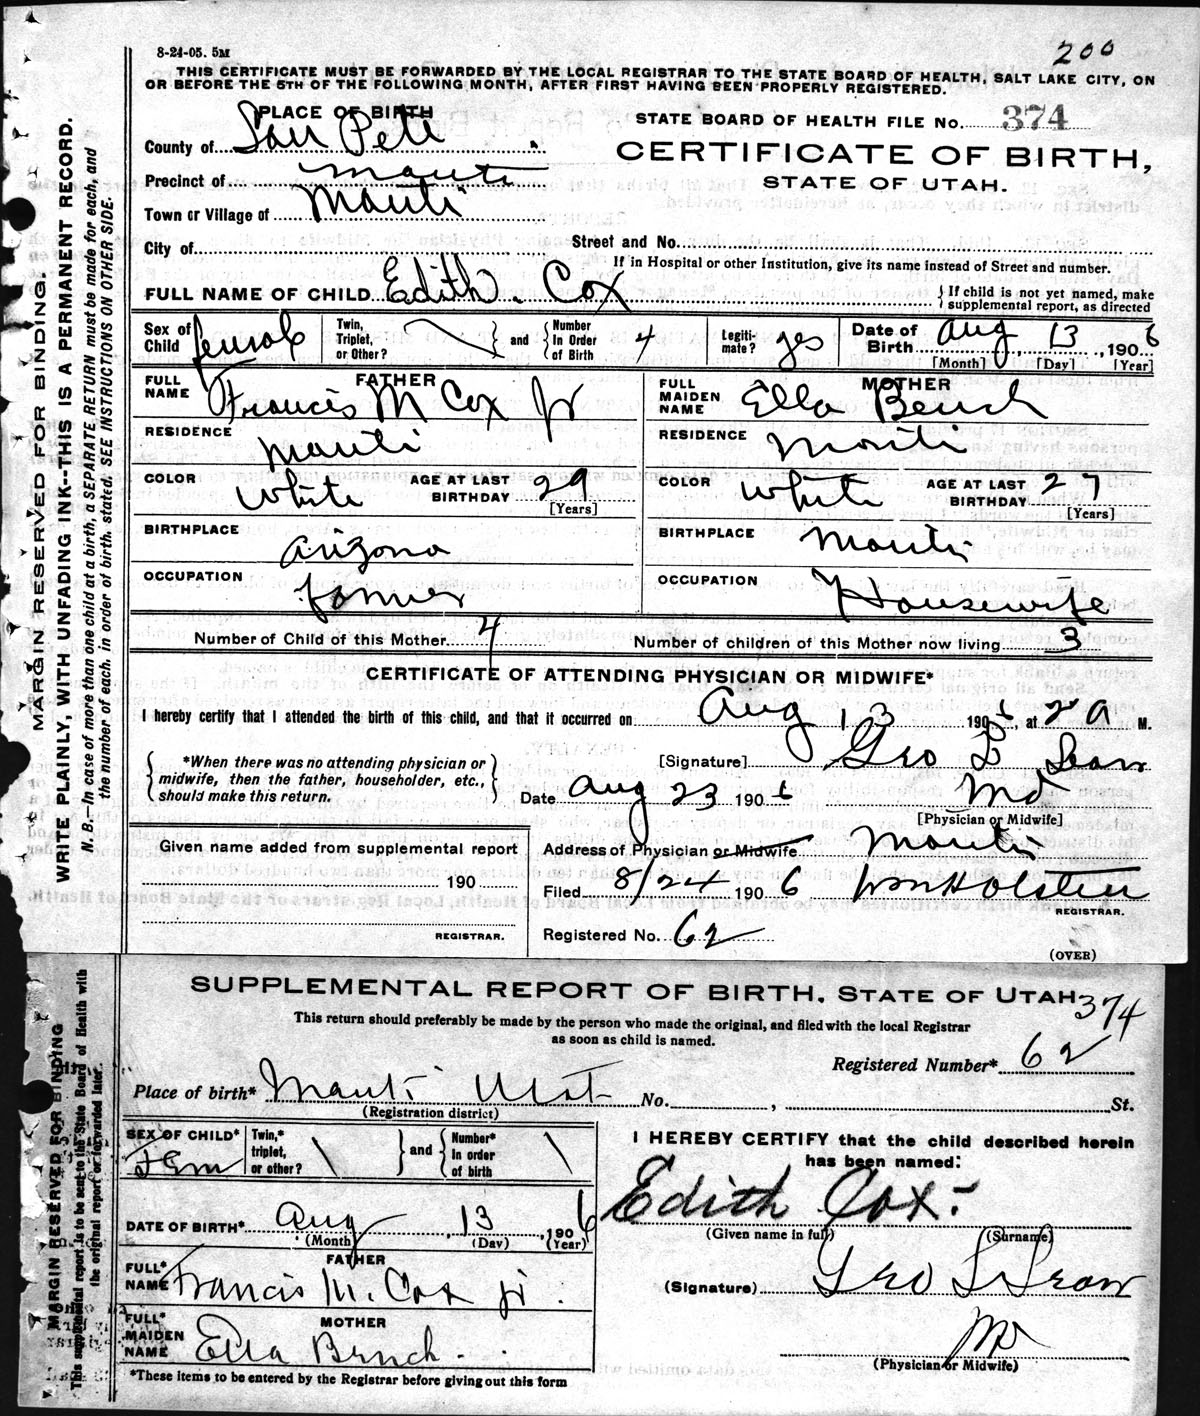 200
8-24-05. 5M
THIS CERTIFICATE MUST BE FORWARDED BY THE LOCAL REGISTRAR TO THE STATE BOARD OF HEALTH, SALT LAKE CITY, ON
OR BEFORE THE 5TH OF THE FOLLOWING MONTH, AFTER FIRST HAVING BEEN PROPERLY REGISTERED.
PLACE OF BIRTH
STATE BOARD OF HEALTH FILE No. 374
County of San Pete
CERTIFICATE OF BIRTH,
STATE OF UTAH.
Precinct of Manti
Town or Village of Manti
City of
Street and No.
If in Hospital or other Institution, give its name instead of Street and number.
FULL NAME OF CHILD Edith. Cox
{ If child is not yet named, make
supplemental report, as directed
Sex of Child female
Twin, Triplet, or Other? \ } and { Number In Order of Birth 4
Legitimate? yes
Date of Birth Aug 13, 1906
[Month] [Day] [Year]
FATHER
FULL NAME Francis M Cox Jr
RESIDENCE Manti
COLOR White AGE AT LAST BIRTHDAY 29
[Years]
BIRTHPLACE Arizona
OCCUPATION Farmer
MOTHER
FULL MAIDEN NAME Ella Bench
RESIDENCE Manti
COLOR White AGE AT LAST BIRTHDAY 27
[Years]
BIRTHPLACE Manti
OCCUPATION Housewife
Number of Child of this Mother 4 Number of children of this Mother now living 3
CERTIFICATE OF ATTENDING PHYSICIAN OR MIDWIFE*
I hereby certify that I attended the birth of this child, and that it occurred on Aug 13 1906, at 2 a M.
{ *When there was no attending physician or
midwife, then the father, householder, etc.,
should make this return. }
[Signature] Geo L
Date Aug 23 1906 MD
[Physician or Midwife]
Given name added from supplemental report
190
REGISTRAR.
Address of Physician or Midwife Manti
Filed 8/24 1906 Wm Holsten
REGISTRAR.
Registered No. 62
(OVER)
MARGIN RESERVED FOR BINDING.
WRITE PLAINLY, WITH UNFADING INK--THIS IS A PERMANENT RECORD.
N. B.—In case of more than one child at a birth, a SEPARATE RETURN must be made for each, and
the number of each, in order of birth, stated. SEE INSTRUCTIONS ON OTHER SIDE.
SUPPLEMENTAL REPORT OF BIRTH, STATE OF UTAH
374
This return should preferably be made by the person who made the original, and filed with the local Registrar
as soon as child is named.
Registered Number* 62
Place of birth* Manti Utah No. , St.
(Registration district)
SEX OF CHILD* Fem
Twin,* triplet, or other? \ } and { Number* In order of birth \
DATE OF BIRTH* Aug, 13, 1906
(Month) (Day) (Year)
FATHER
FULL* NAME Francis M. Cox jr.
MOTHER
FULL* MAIDEN NAME Ella Bench.
*These items to be entered by the Registrar before giving out this form
I HEREBY CERTIFY that the child described herein
has been named:
Edith Cox.
(Given name in full) (Surname)
(Signature) Geo L
MD
(Physician or Midwife)
MARGIN RESERVED FOR BINDING
This supplemental report is to be sent to the State Board of Health with
the original report or forwarded later.